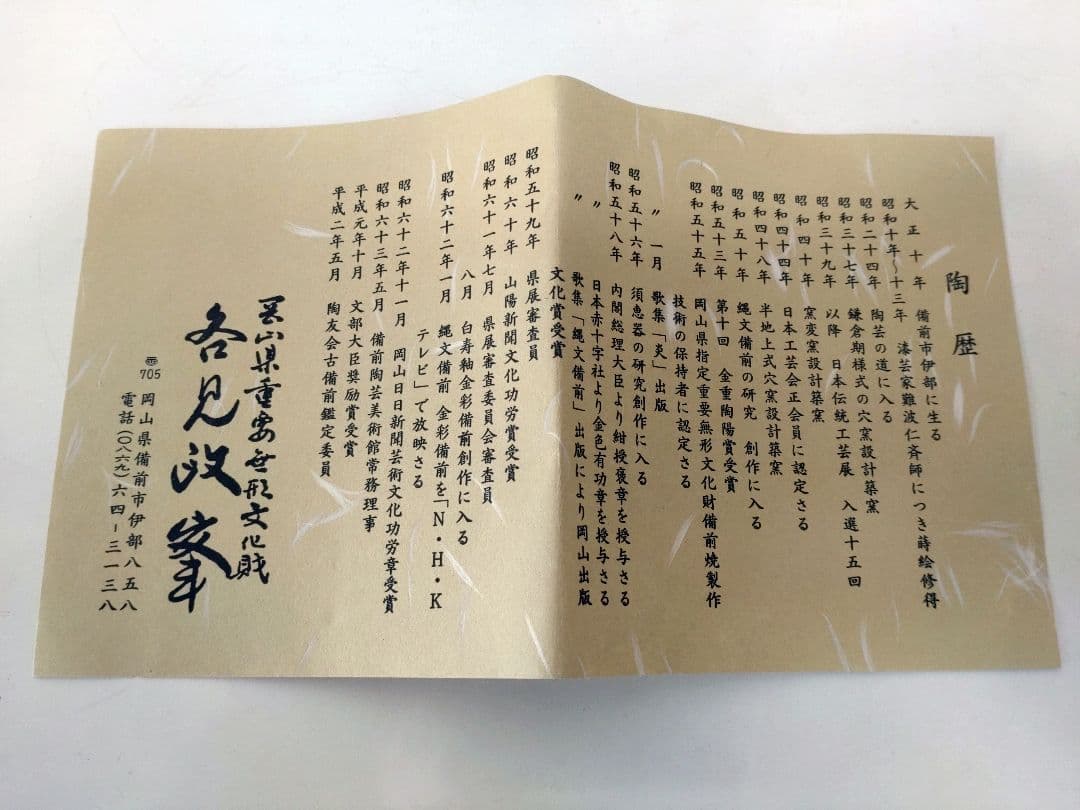 陶歴
大正十年 備前市伊部に生る
昭和十年〜十三年 漆芸家難波仁斉師につき蒔絵修得
昭和二十四年 陶芸の道に入る
昭和三十七年 鎌倉期様式の穴窯設計築窯
昭和三十九年 以降 日本伝統工芸展 入選十五回
昭和四十年 窯変窯設計築窯
昭和四十四年 日本工芸会正会員に認定さる
昭和四十八年 半地上式穴窯設計築窯
昭和五十年 縄文備前の研究 創作に入る
昭和五十三年 第十回 金重陶陽賞受賞
昭和五十五年 岡山県指定重要無形文化財備前焼製作
技術の保持者に認定さる
〃 一月 歌集「炎」出版
昭和五十六年 須恵器の研究創作に入る
昭和五十八年 内閣総理大臣より紺授褒章を授与さる
〃 日本赤十字社より金色有功章を授与さる
〃 歌集「縄文備前」出版により岡山出版
文化賞受賞
昭和五十九年 県展審査員
昭和六十年 山陽新聞文化功労賞受賞
昭和六十一年七月 県展審査委員会審査員
八月 白寿釉金彩備前創作に入る
昭和六十二年一月 縄文備前 金彩備前を「N・H・K
テレビ」で放映さる
昭和六十二年十一月 岡山日日新聞芸術文化功労章受賞
昭和六十三年五月 備前陶芸美術館常務理事
平成元年十月 文部大臣奨励賞受賞
平成二年五月 陶友会古備前鑑定委員
岡山県重要無形文化財
各見政峯
〒705 岡山県備前市伊部八五八
電話(〇八六九)六四-三一三八